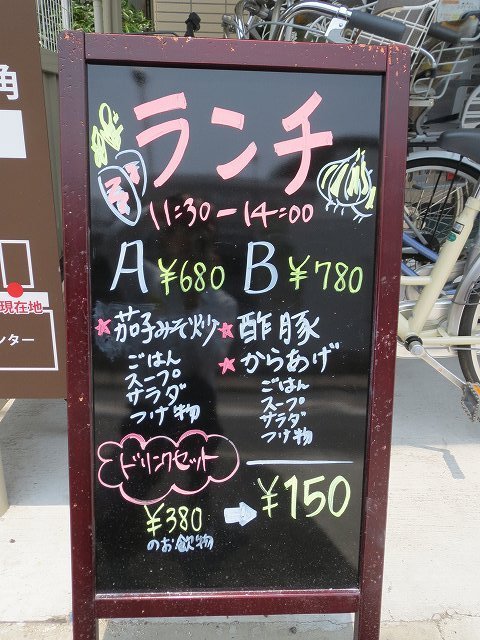 角
現在地
ンター
ランチ
11:30-14:00
A ¥680
B ¥780
★茄子みそ炒
ごはん
スープ
サラダ
つけ物
★酢豚
★からあげ
ごはん
スープ
サラダ
つけ物
ドリンクセット
¥380 → ¥150
のお飲物